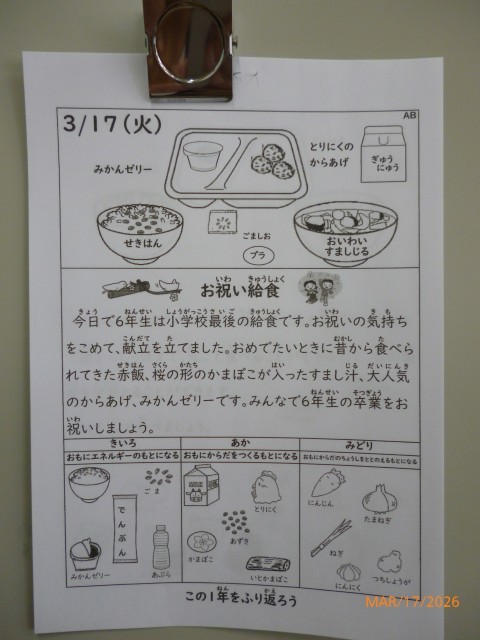 AB
3/17(火)
みかんゼリー
とりにくの
からあげ
ぎゅう
にゅう
せきはん
ごましお
プラ
おいわい
すましじる
お祝い給食
今日で6年生は小学校最後の給食です。お祝いの気持ち
をこめて、献立を立てました。おめでたいときに昔から食べら
れてきた赤飯、桜の形のかまぼこが入ったすまし汁、大人気
のからあげ、みかんゼリーです。みんなで6年生の卒業をお
祝いしましょう。
きいろ
おもにエネルギーのもとになる
ごま
でんぷん
みかんゼリー
あぶら
あか
おもにからだをつくるもとになる
とりにく
あずき
かまぼこ
いとかまぼこ
みどり
おもにからだのちょうしをととのえるもとになる
にんじん
たまねぎ
ねぎ
にんにく
つちしょうが
この1年をふり返ろう
MAR/17/2026